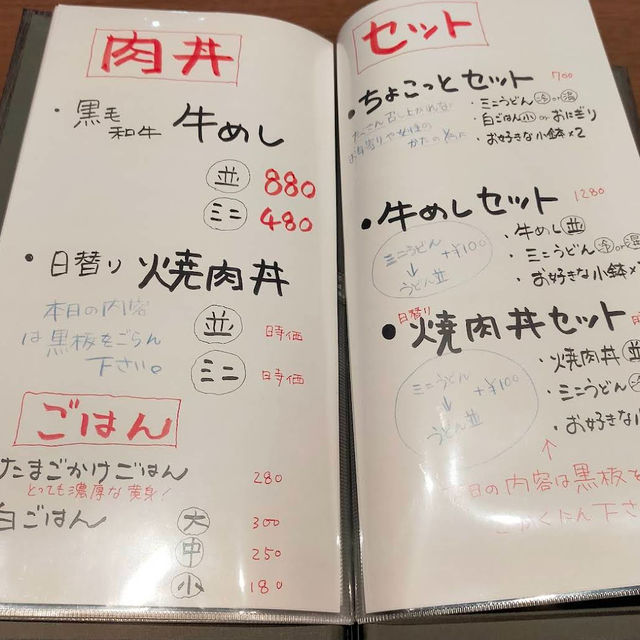 肉丼
・黒毛和牛 牛めし
並 880
ミニ 480
・日替り 焼肉丼
本日の内容
は黒板をごらん
下さい。
並 時価
ミニ 時価
ごはん
たまごかけごはん 280
とっても濃厚な黄身!
白ごはん 大 300
中 250
小 180
セット
・ちょこっとセット 700
たくさん召し上がれない
お年寄りや女性の
かたの為に
・ミニうどん 冷or温
・白ごはん小 or おにぎり
・お好きな小鉢×2
・牛めしセット 1280
ミニうどん +¥100
↓
うどん並
・牛めし並
・ミニうどん 冷or温
・お好きな小鉢×
・日替り 焼肉丼セット
ミニうどん +¥100
↓
うどん並
・焼肉丼 並
・ミニうどん 冷
・お好きな小
↑
日の内容は黒板を
下さ